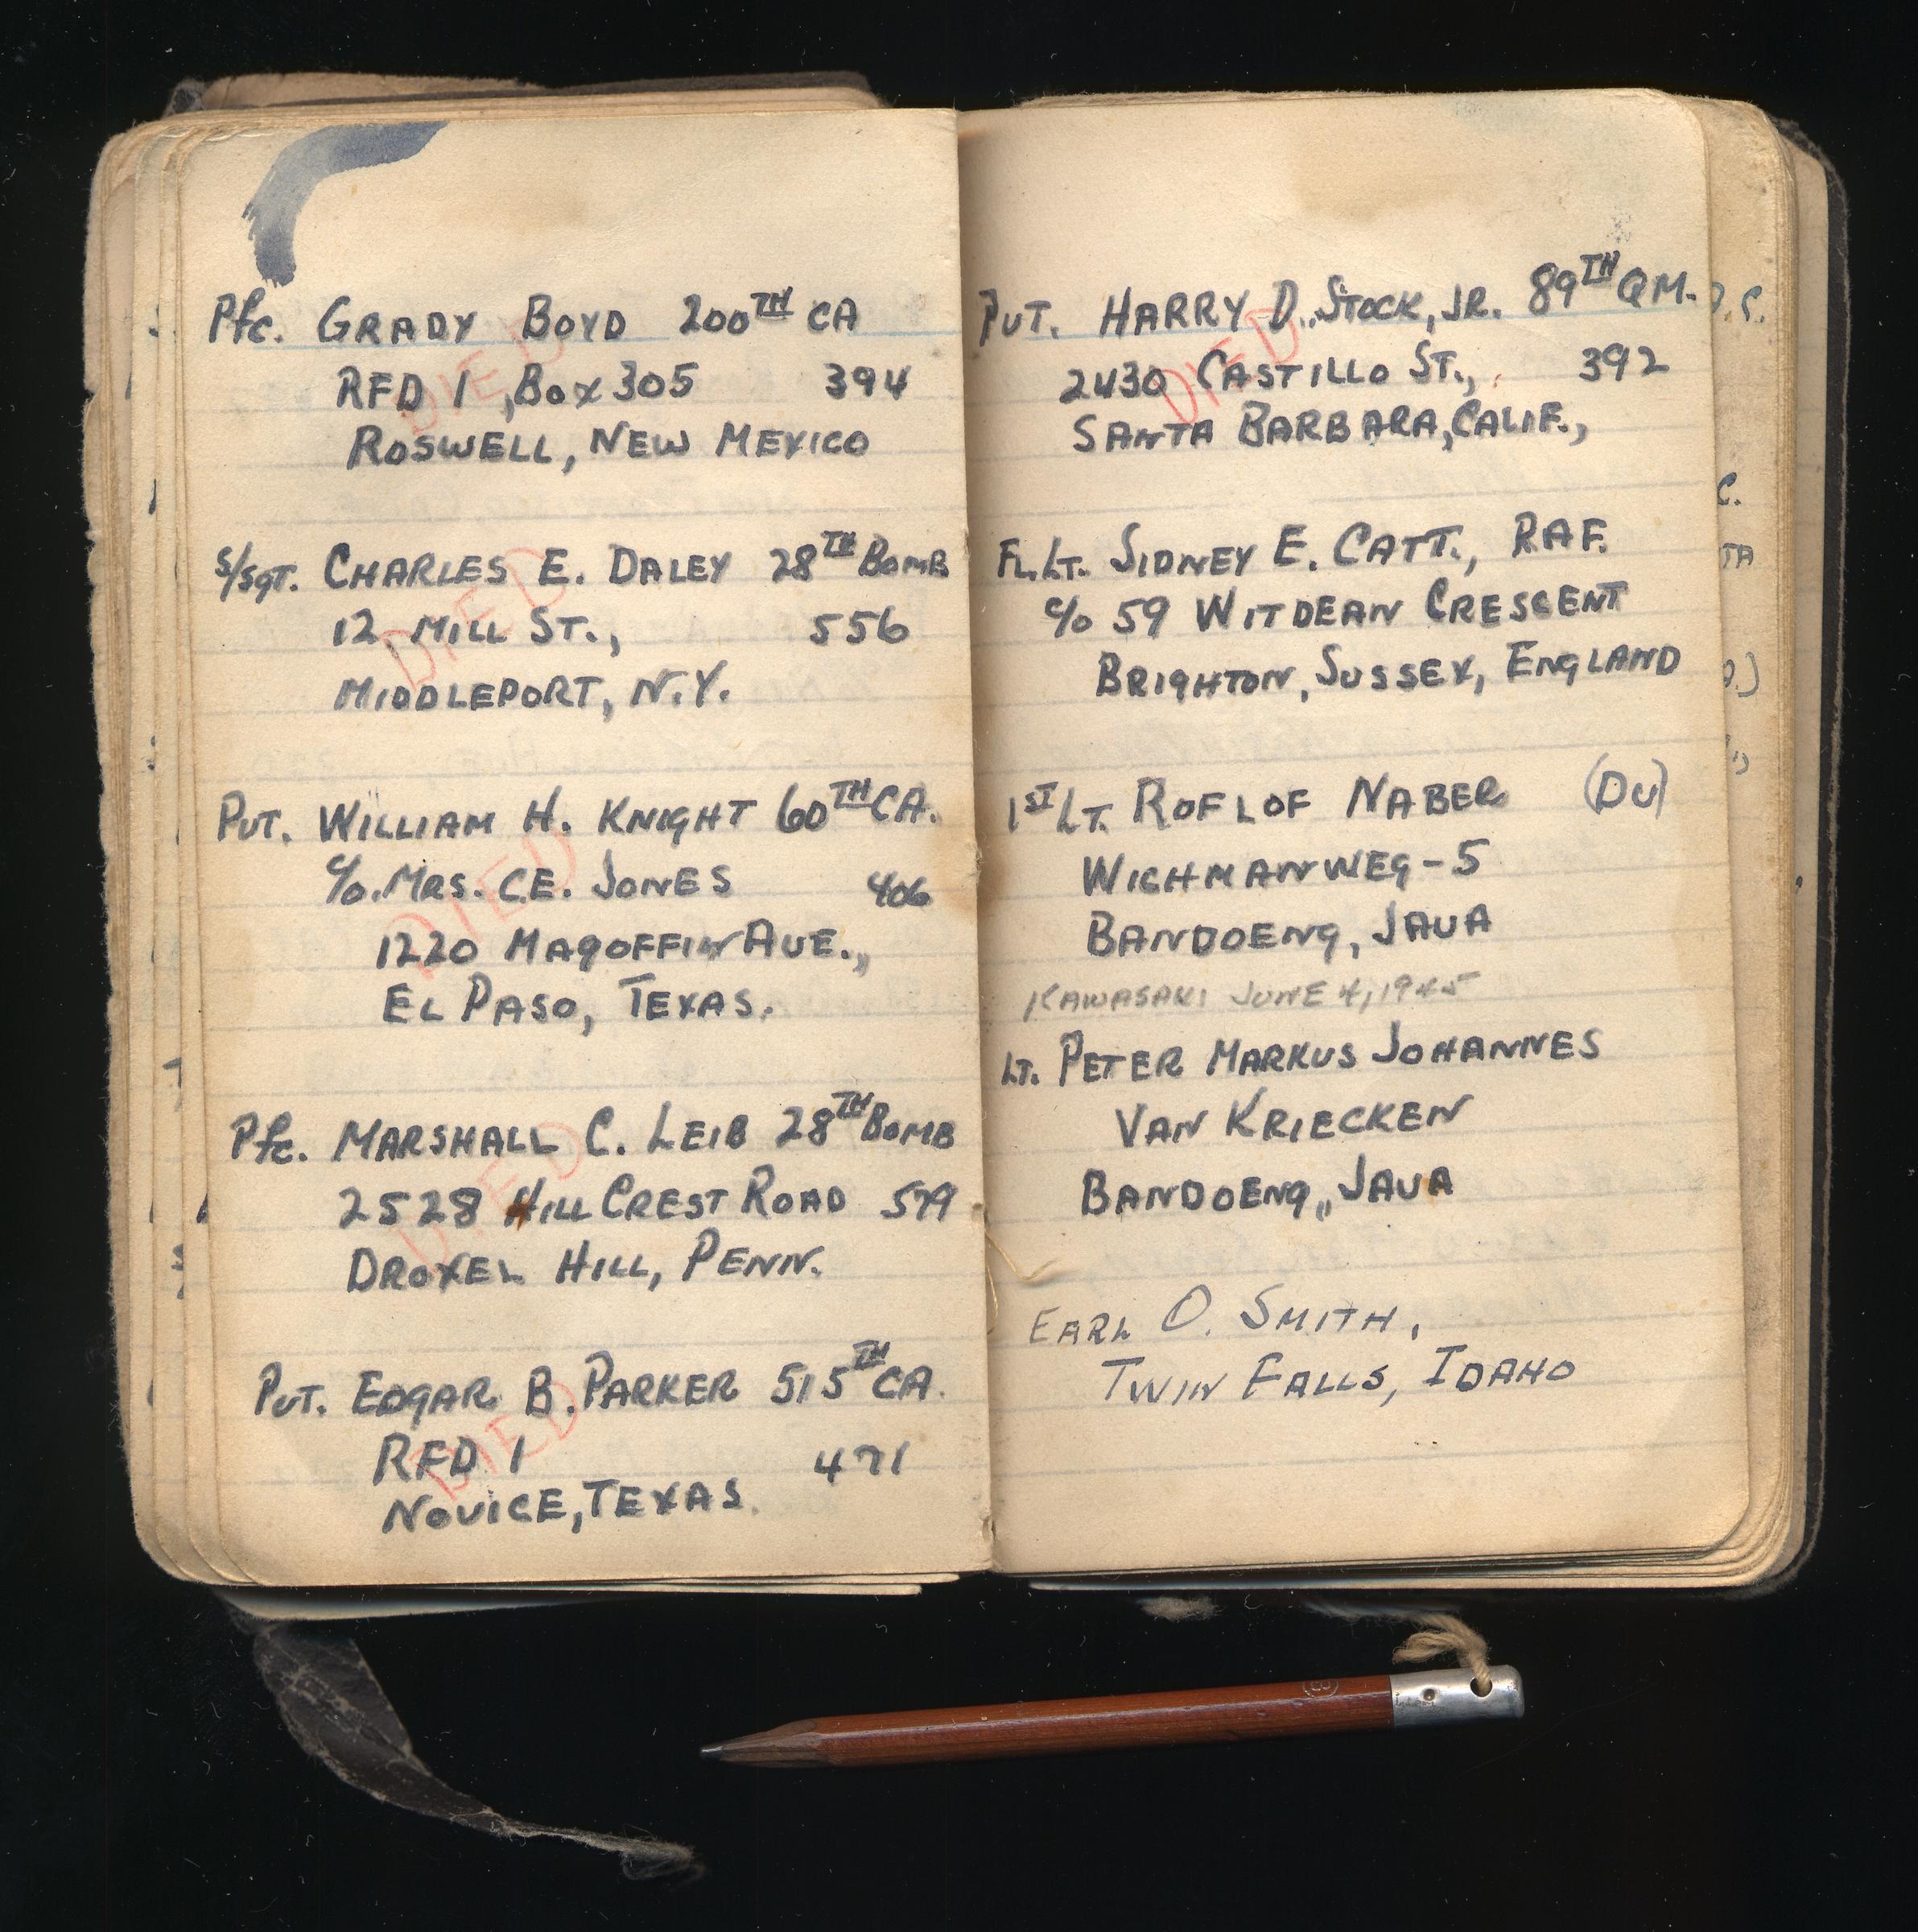 Pfc. GRADY BOYD 200TH CA
DIED
RFD 1, BOX 305 394
ROSWELL, NEW MEXICO
S/SGT. CHARLES E. DALEY 28TH BOMB
DIED
12 MILL ST., 556
MIDDLEPORT, N.Y.
PVT. WILLIAM H. KNIGHT 60TH CA.
DIED
c/o. MRS. C.E. JONES 406
1220 MAGOFFIN AVE.,
EL PASO, TEXAS.
Pfc. MARSHALL C. LEIB 28TH BOMB
DIED
2528 HILL CREST ROAD 579
DROXEL HILL, PENN.
PVT. EDGAR B. PARKER 515TH CA.
DIED
RFD 1 471
NOVICE, TEXAS.
PVT. HARRY D. STOCK, JR. 89TH QM.
DIED
2430 CASTILLO ST., 392
SANTA BARBARA, CALIF.,
FL. LT. SIDNEY E. CATT., RAF.
c/o 59 WITDEAN CRESCENT
BRIGHTON, SUSSEX, ENGLAND
1ST LT. ROFLOF NABER (DU)
WICHMANWEG-5
BANDOENG, JAVA
KAWASAKI JUNE 4, 1945
LT. PETER MARKUS JOHANNES
VAN KRIECKEN
BANDOENG, JAVA
EARL O. SMITH,
TWIN FALLS, IDAHO